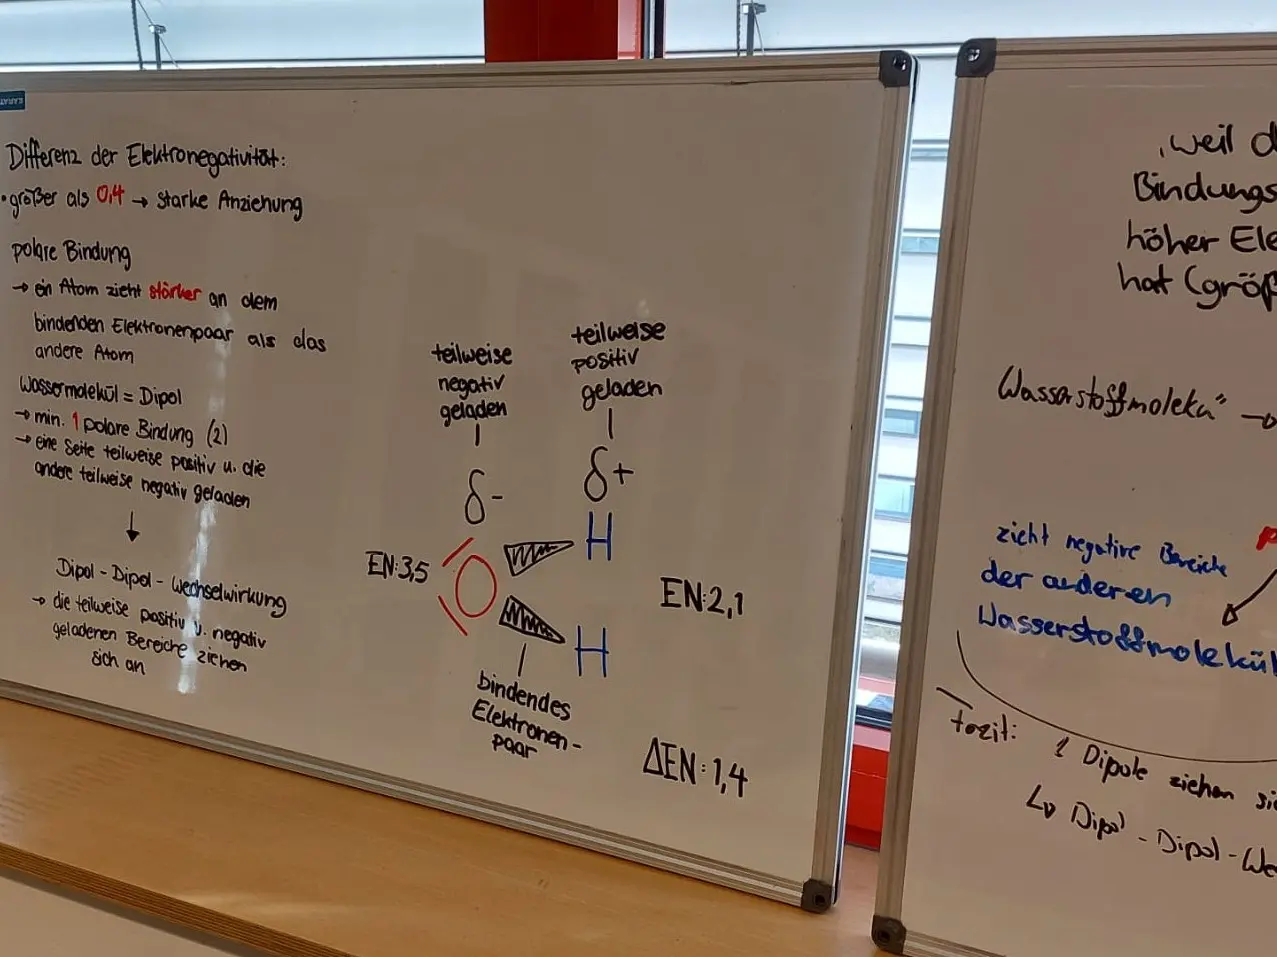 Differenz der Elektronegativität:
• größer als 0,4 → starke Anziehung
polare Bindung
→ ein Atom zieht stärker an dem
bindenden Elektronenpaar als das
andere Atom
Wassermolekül = Dipol
→ min. 1 polare Bindung (2)
→ eine Seite teilweise positiv u. die
andere teilweise negativ geladen
↓
Dipol-Dipol-Wechselwirkung
→ die teilweise positiv u. negativ
geladenen Bereiche ziehen
sich an
teilweise
negativ
geladen
δ-
teilweise
positiv
geladen
δ+
EN:3,5
O
H
H
EN:2,1
bindendes
Elektronen-
paar
ΔEN:1,4
, weil d
Bindungs
höher Ele
hat (größ
Wasserstoffmolekü" →
zieht negative Bereiche
der anderen
Wasserstoffmolekül
Fazit: 2 Dipole ziehen si
↳ Dipol-Dipol-We